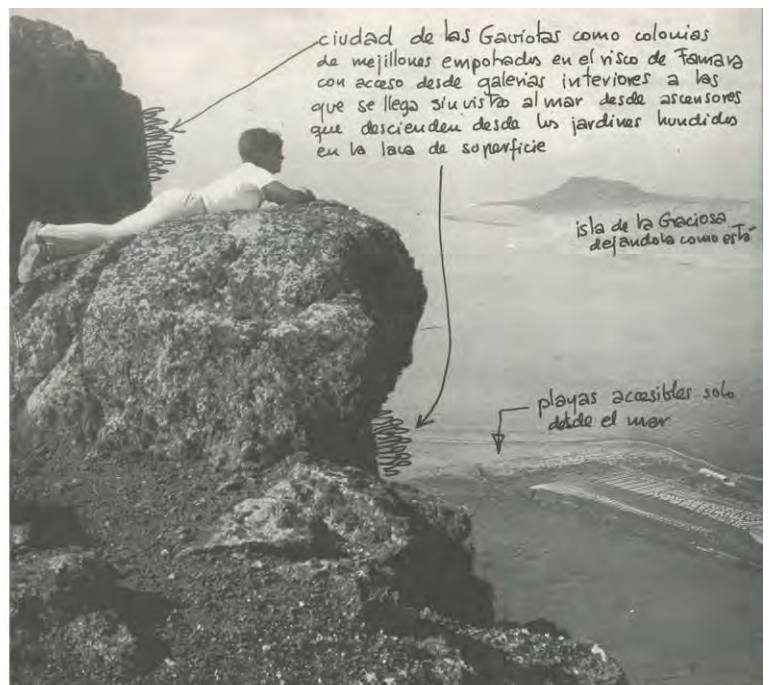 ciudad de las Gaviotas como colonias
de mejillones empotrados en el risco de Famara
con acceso desde galerias interiores a las
que se llega sin vistas al mar desde ascensores
que descienden desde los jardines hundidos
en la lava de superficie
isla de la Graciosa
dejandola como está
playas accesibles solo
desde el mar